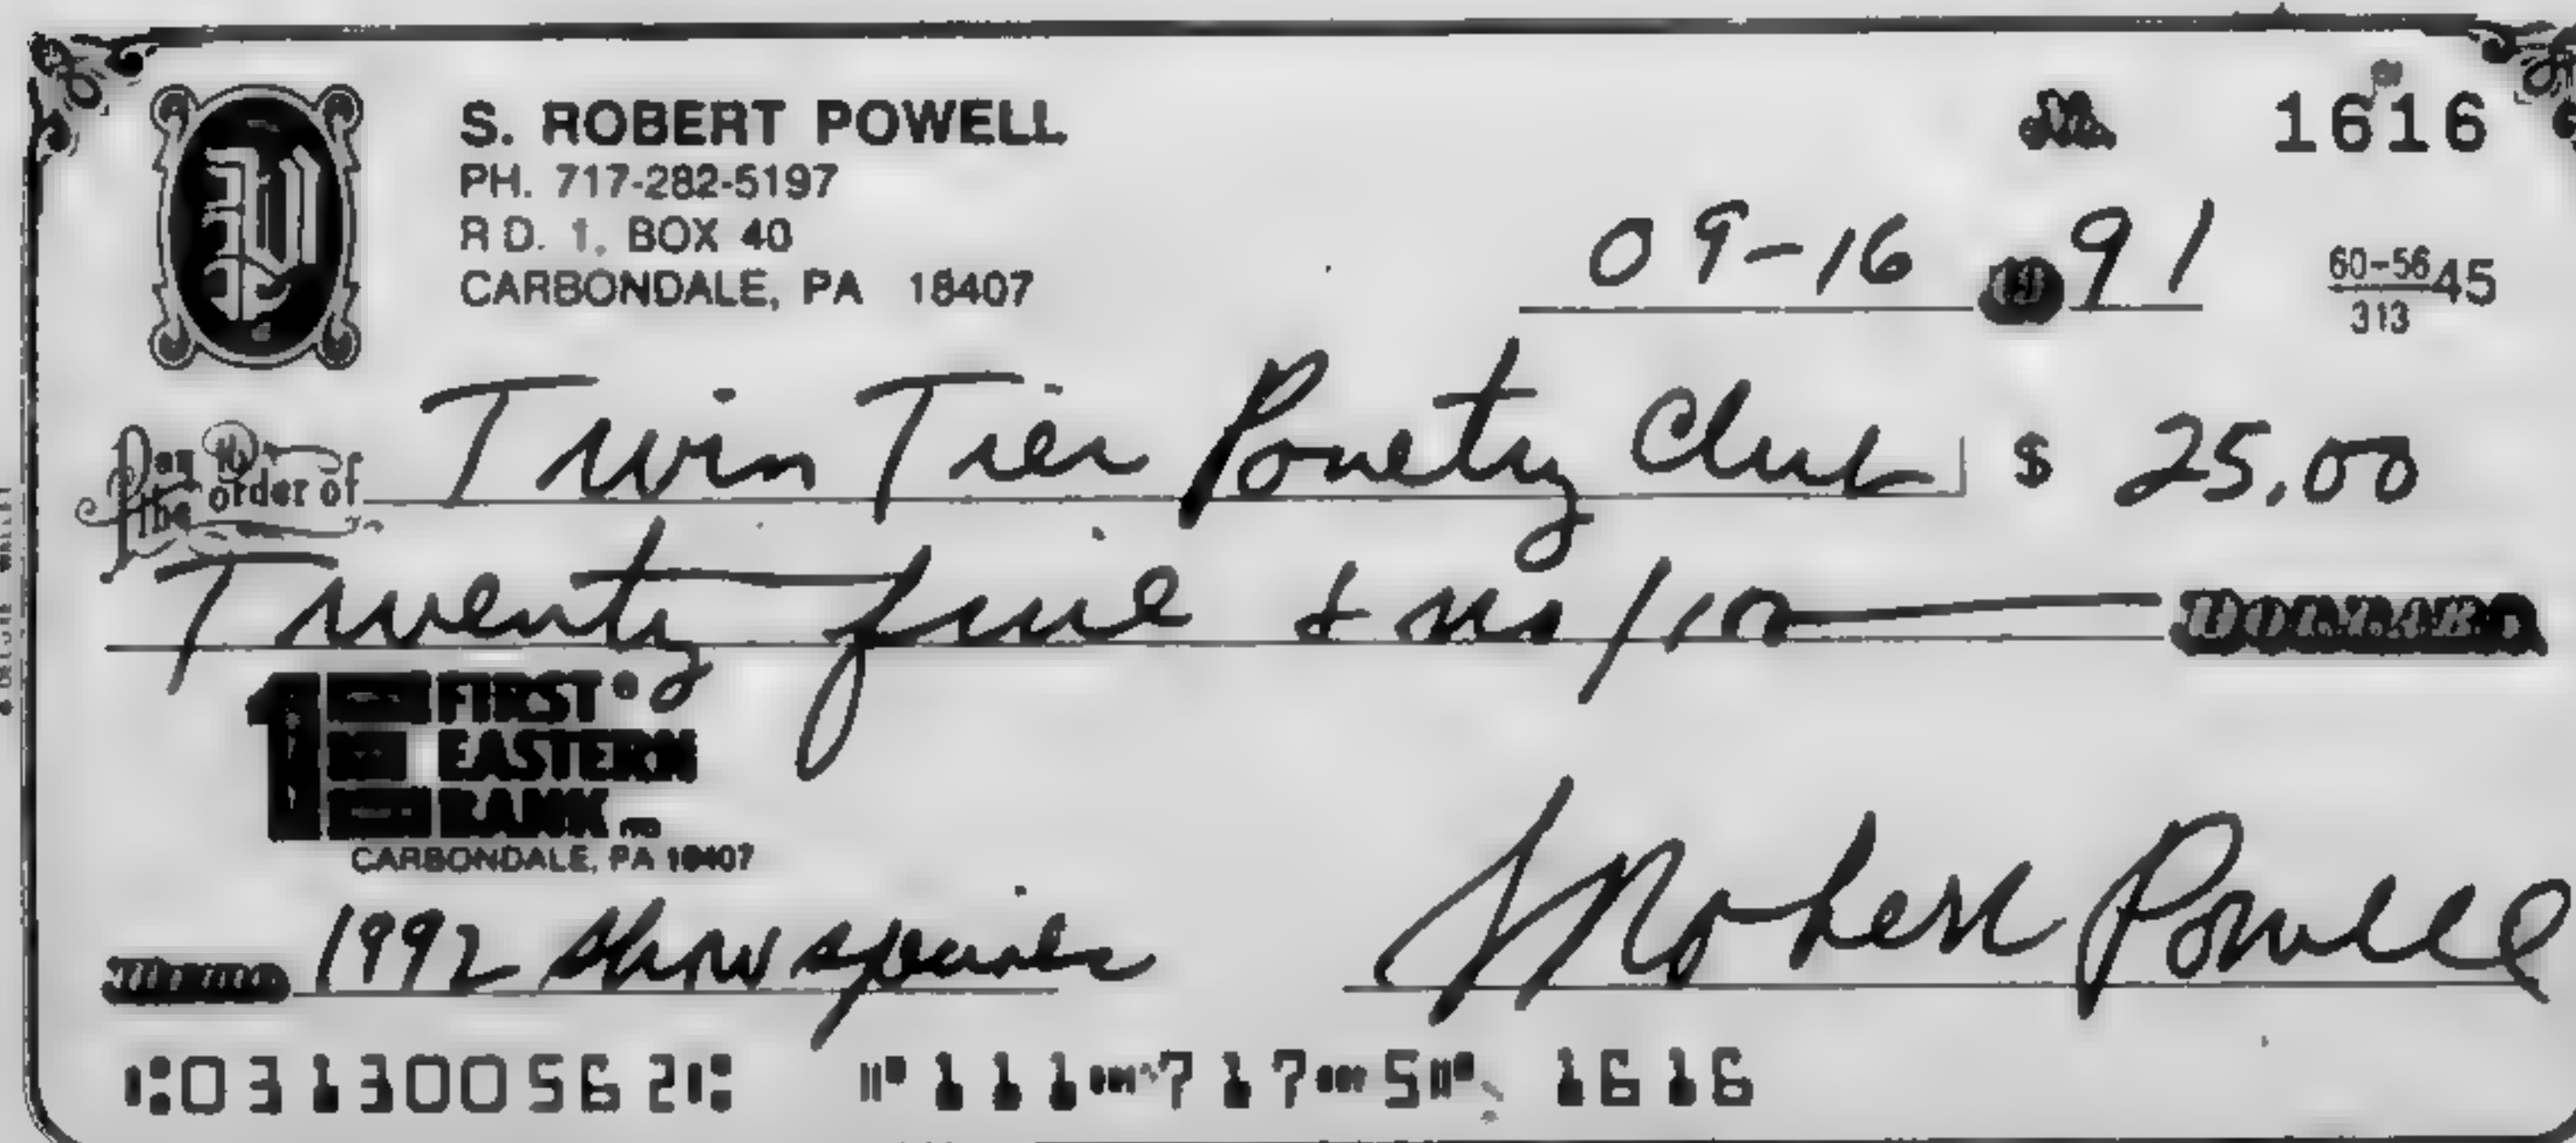 S. ROBERT POWELL
No. 1616
PH. 717-282-5197
R D. 1, BOX 40
CARBONDALE, PA 18407
09-16 19 91
60-56 45
313
Pay to the order of Twin Tier Pouetry Club $ 25.00
Twenty five & no/100 DOLLARS
1 FIRST EASTERN BANK
CARBONDALE, PA 18407
MEMO 1992 show
S Robert Powell
⑆031300562⑆ ⑈111⑉717⑉5⑈ 1616